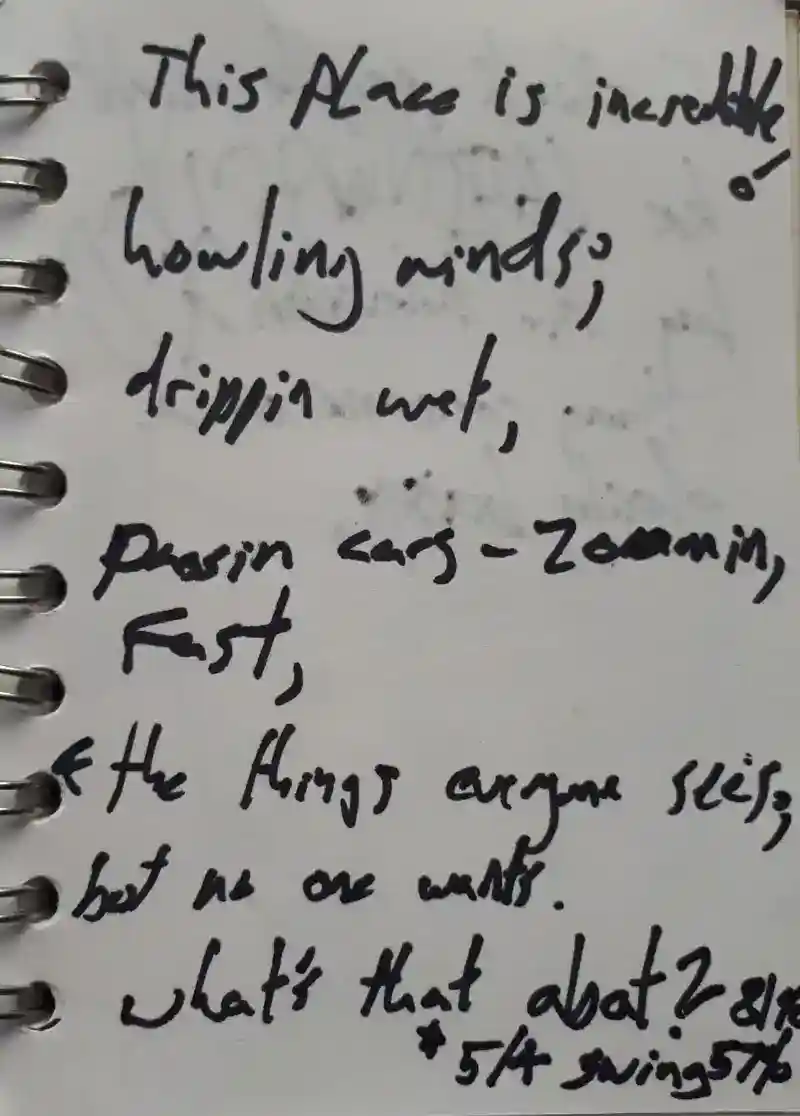 This Place is incredible!
howling winds;
drippin wet,
passin cars - Zoommin,
Fast,
& the things everyone sees;
but no one wants.
what's that abot?
* 5/4 swing 57%